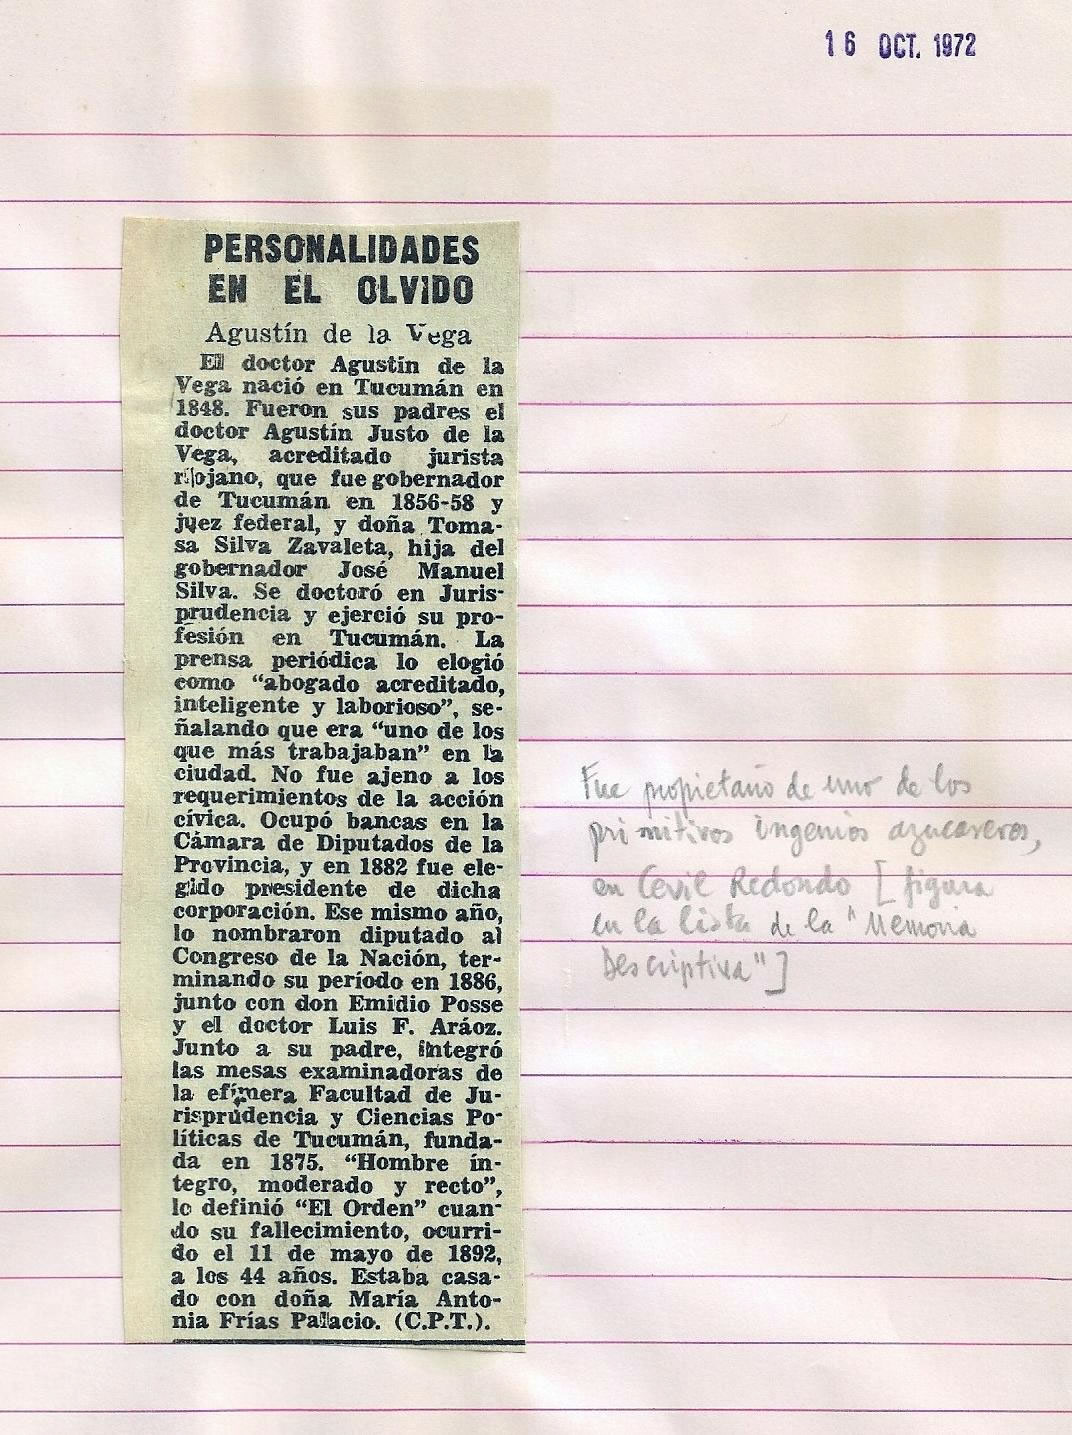 16 OCT. 1972
PERSONALIDADES
EN EL OLVIDO
Agustín de la Vega
El doctor Agustín de la
Vega nació en Tucumán en
1848. Fueron sus padres el
doctor Agustín Justo de la
Vega, acreditado jurista
riojano, que fue gobernador
de Tucumán en 1856-58 y
juez federal, y doña Toma-
sa Silva Zavaleta, hija del
gobernador José Manuel
Silva. Se doctoró en Juris-
prudencia y ejerció su pro-
fesión en Tucumán. La
prensa periódica lo elogió
como "abogado acreditado,
inteligente y laborioso", se-
ñalando que era "uno de los
que más trabajaban" en la
ciudad. No fue ajeno a los
requerimientos de la acción
cívica. Ocupó bancas en la
Cámara de Diputados de la
Provincia, y en 1882 fue ele-
gido presidente de dicha
corporación. Ese mismo año,
lo nombraron diputado al
Congreso de la Nación, ter-
minando su período en 1886,
junto con don Emidio Posse
y el doctor Luis F. Aráoz.
Junto a su padre, integró
las mesas examinadoras de
la efímera Facultad de Ju-
risprudencia y Ciencias Po-
líticas de Tucumán, funda-
da en 1875. "Hombre ín-
tegro, moderado y recto",
lo definió "El Orden" cuan-
do su fallecimiento, ocurri-
do el 11 de mayo de 1892,
a los 44 años. Estaba casa-
do con doña María Anto-
nia Frías Palacio. (C.P.T.).
Fue propietario de uno de los
primitivos ingenios azucareros,
en Cevil Redondo [figura
en la lista de la "Memoria
Descriptiva"]